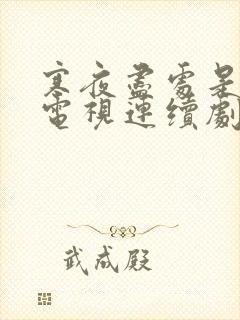 寒夜盡處是
電視連續劇
武成殿